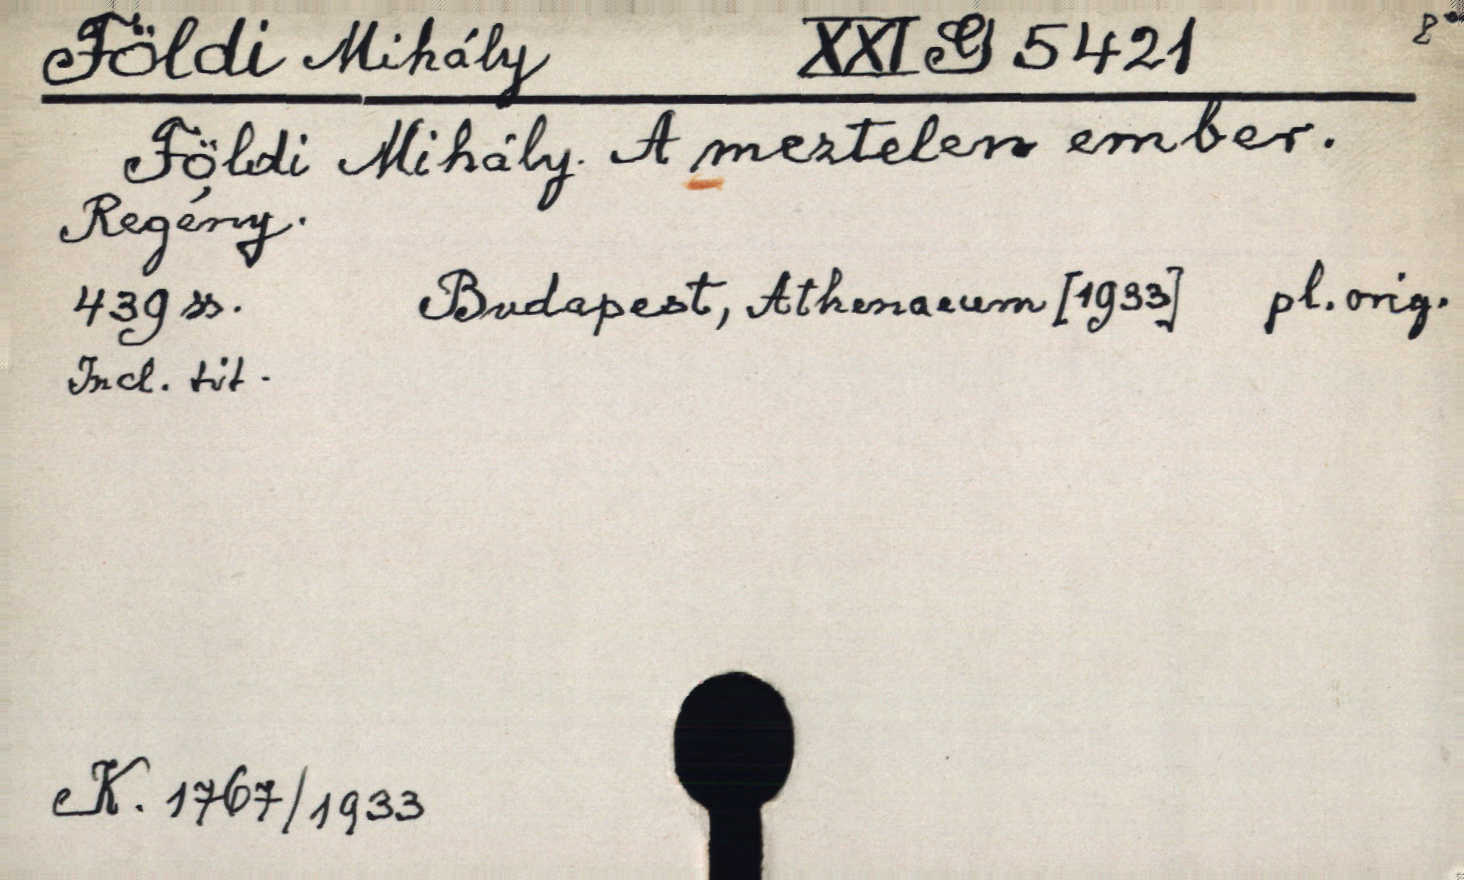 Földi Mihály XXI G 5421 8°
Földi Mihály. A meztelen ember.
Regény.
439 ss. Budapest, Athenaeum [1933] pl. orig.
Incl. tit.
K. 1767/1933